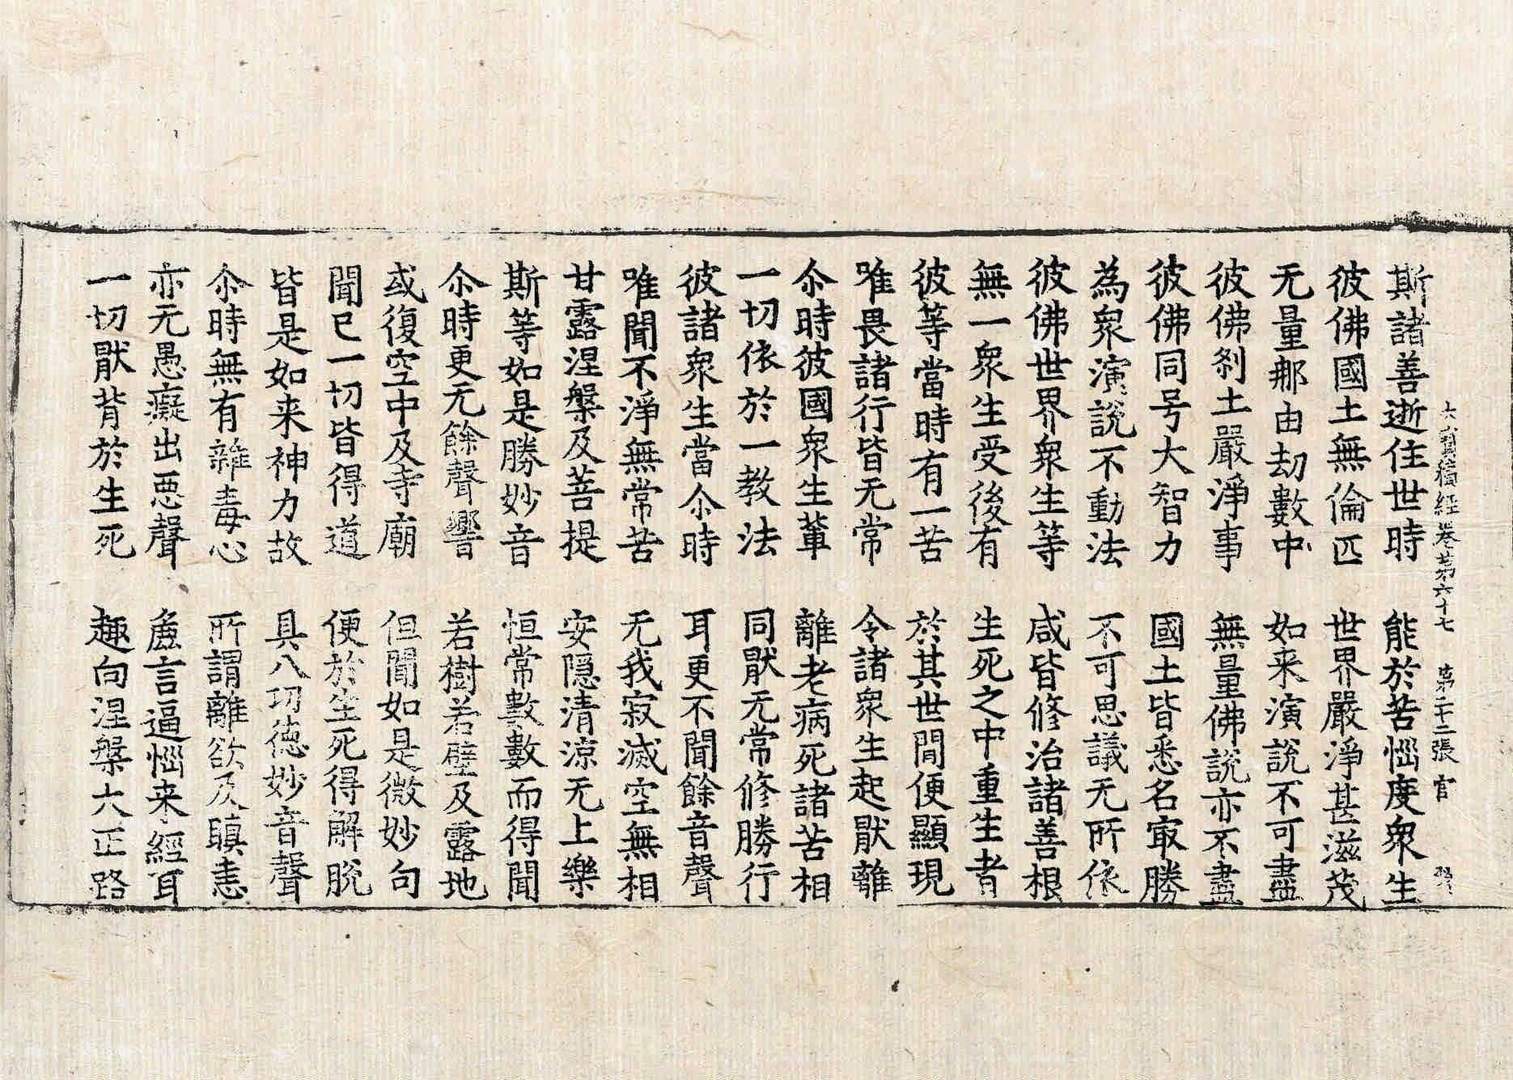 大寶積經卷苐六十七　第二十二張　官
斯諸善逝住世時　能於苦惱度衆生
彼佛國土無倫匹　世界嚴淨甚滋茂
无量那由劫數中　如来演說不可盡
彼佛刹土嚴淨事　無量佛說亦不盡
彼佛同号大智力　國土皆悉名㝡勝
為衆演說不動法　不可思議无所依
彼佛世界衆生等　咸皆修治諸善根
無一衆生受後有　生死之中重生者
彼等當時有一苦　於其世閒便顯現
唯畏諸行皆无常　令諸衆生起猒離
尒時彼國衆生軰　離老病死諸苦相
一切依於一教法　同猒无常修勝行
彼諸衆生當尒時　耳更不聞餘音聲
唯聞不淨無常苦　无我寂滅空無相
甘露涅槃及菩提　安隠清涼无上樂
斯等如是勝妙音　恒常數數而得聞
尒時更无餘聲響　若樹若壁及露地
或復空中及寺廟　但聞如是微妙句
聞已一切皆得道　便於生死得解脫
皆是如来神力故　具八功德妙音聲
尒時無有雜毒心　所謂離欲及瞋恚
亦无愚癡出惡聲　麁言逼惱来經耳
一切猒背於生死　趣向涅槃六正路